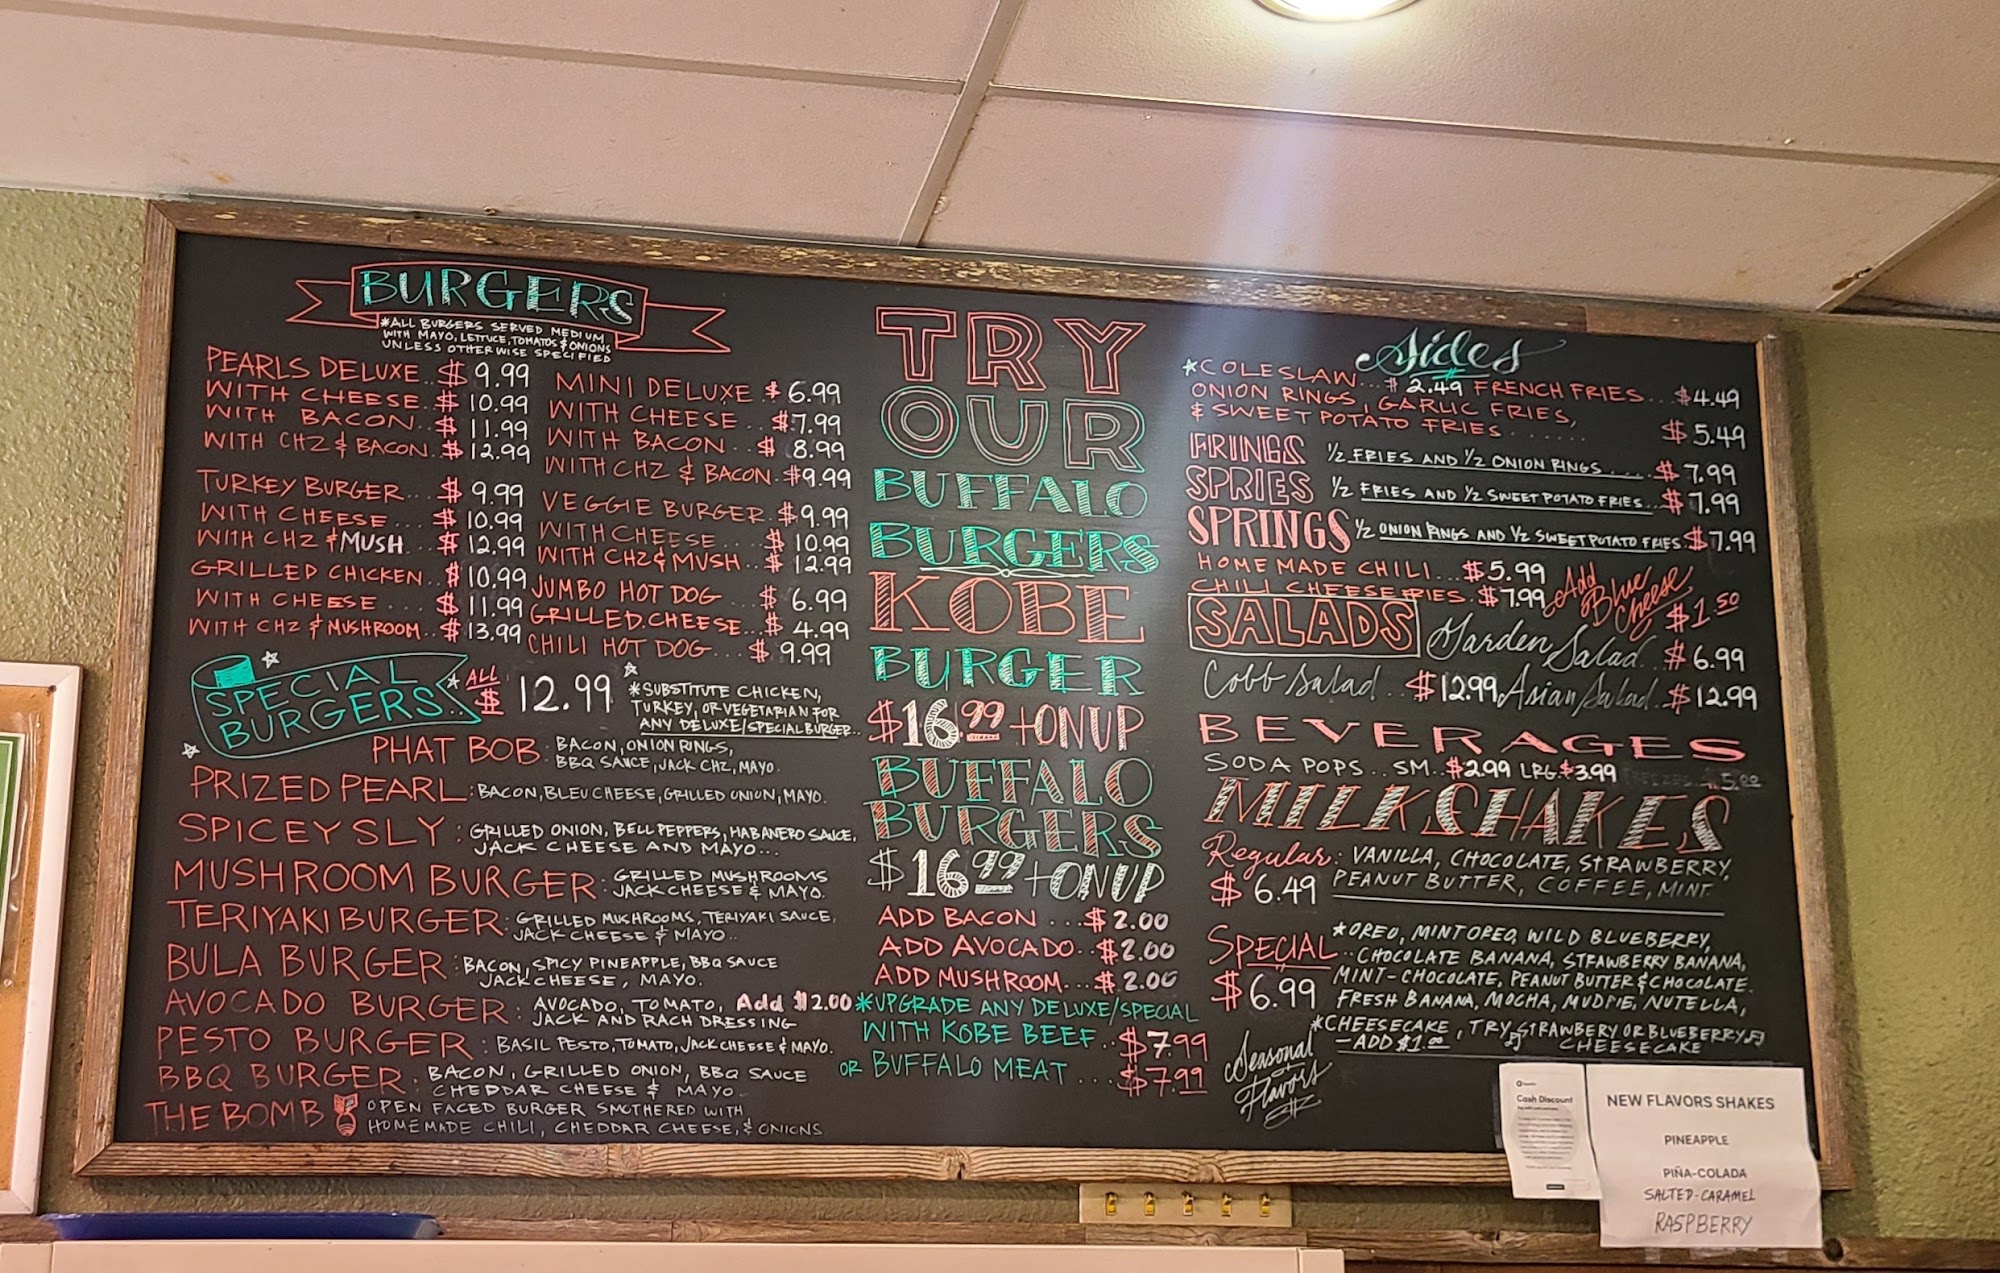 BURGERS
*ALL BURGERS SERVED MEDIUM
WITH MAYO, LETTUCE, TOMATOS & ONIONS
UNLESS OTHERWISE SPECIFIED
PEARLS DELUXE..$ 9.99
WITH CHEESE.$ 10.99
WITH BACON..$ 11.99
WITH CHZ & BACON.$ 12.99
TURKEY BURGER...$ 9.99
WITH CHEESE....$ 10.99
WITH CHZ & MUSH...$ 12.99
GRILLED CHICKEN..$10.99
WITH CHEESE....$ 11.99
WITH CHZ & MUSHROOM..$ 13.99
MINI DELUXE $6.99
WITH CHEESE...$7.99
WITH BACON...$ 8.99
WITH CHZ & BACON.$9.99
VEGGIE BURGER.$9.99
WITH CHEESE....$ 10.99
WITH CHZ & MUSH...$ 12.99
JUMBO HOT DOG....$ 6.99
GRILLED.CHEESE...$ 4.99
CHILI HOT DOG...$ 9.99
SPECIAL
BURGERS..
*ALL
$ 12.99
*SUBSTITUTE CHICKEN,
TURKEY, OR VEGETARIAN FOR
ANY DELUXE/SPECIAL BURGER...
PHAT BOB: BACON, ONION RINGS,
BBQ SAUCE, JACK CHZ, MAYO.
PRIZED PEARL: BACON, BLEU CHEESE, GRILLED ONION, MAYO.
SPICEY SLY: GRILLED ONION, BELL PEPPERS, HABANERO SAUCE,
JACK CHEESE AND MAYO...
MUSHROOM BURGER: GRILLED MUSHROOMS
JACK CHEESE & MAYO.
TERIYAKI BURGER: GRILLED MUSHROOMS, TERIYAKI SAUCE,
JACK CHEESE & MAYO..
BULA BURGER: BACON, SPICY PINEAPPLE, BBQ SAUCE
JACK CHEESE, MAYO.
AVOCADO BURGER: AVOCADO, TOMATO, Add $2.00
JACK AND RACH DRESSING
PESTO BURGER: BASIL PESTO, TOMATO, JACK CHEESE & MAYO.
BBQ BURGER: BACON, GRILLED ONION, BBQ SAUCE
CHEDDAR CHEESE & MAYO..
THE BOMB OPEN FACED BURGER SMOTHERED WITH
HOMEMADE CHILI, CHEDDAR CHEESE, & ONIONS
TRY
OUR
BUFFALO
BURGERS
KOBE
BURGER
$16.99 + ON UP
BUFFALO
BURGERS
$16.99 + ON UP
ADD BACON ...$2.00
ADD AVOCADO..$2.00
ADD MUSHROOM..$2.00
*UPGRADE ANY DELUXE/SPECIAL
WITH KOBE BEEF..$7.99
OR BUFFALO MEAT ....$7.99
Sides
*COLESLAW...$2.49 FRENCH FRIES...$4.49
ONION RINGS, GARLIC FRIES,
& SWEET POTATO FRIES....... $5.49
FRINGS ½ FRIES AND ½ ONION RINGS......$7.99
SPRIES ½ FRIES AND ½ SWEET POTATO FRIES..$7.99
SPRINGS ½ ONION RINGS AND ½ SWEET POTATO FRIES.$7.99
HOMEMADE CHILI...$5.99
CHILI CHEESE FRIES.$7.99
Add Blue Cheese $1.50
SALADS
Garden Salad..$6.99
Cobb Salad..$12.99 Asian Salad.$12.99
BEVERAGES
SODA POPS..SM..$2.99 LRG.$3.99
MILKSHAKES
Regular: VANILLA, CHOCOLATE, STRAWBERRY,
$6.49 PEANUT BUTTER, COFFEE, MINT.
SPECIAL *OREO, MINT OREO, WILD BLUEBERRY,
$6.99 CHOCOLATE BANANA, STRAWBERRY BANANA,
MINT-CHOCOLATE, PEANUT BUTTER & CHOCOLATE.
FRESH BANANA, MOCHA, MUDPIE, NUTELLA,
*CHEESECAKE, TRY STRAWBERY OR BLUEBERRY
-ADD $1.00 CHEESECAKE
Seasonal
Flavors
Cash Discount
NEW FLAVORS SHAKES
PINEAPPLE
PIÑA-COLADA
SALTED-CARAMEL
RASPBERRY